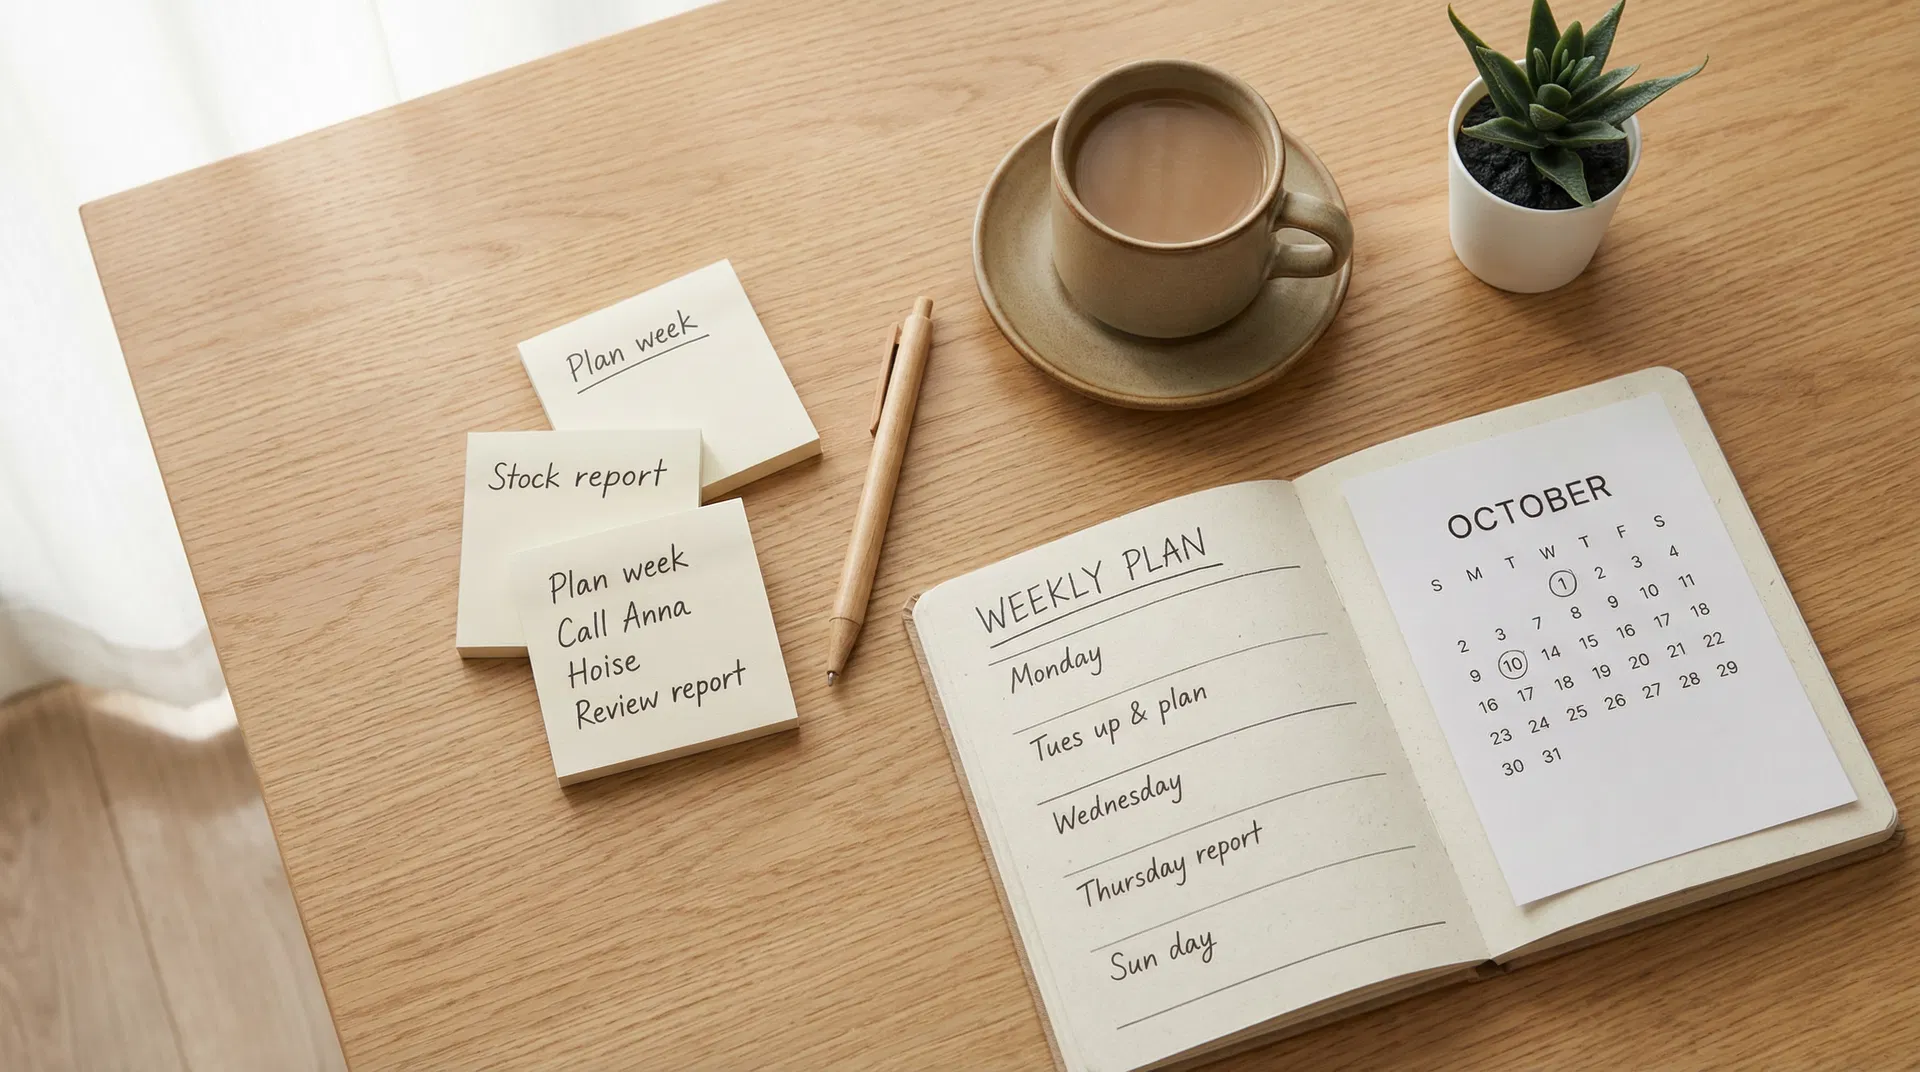 Plan week
Stock report
Plan week
Call Anna
Hoise
Review report
WEEKLY PLAN
Monday
Tues up & plan
Wednesday
Thursday report
Sun day
OCTOBER
S M T W T F S
1 2 3 4
2 3 7 8 9 10 11
9 10 14 15 16 17 18
16 17 18 19 20 21 22
23 24 25 26 27 28 29
30 31